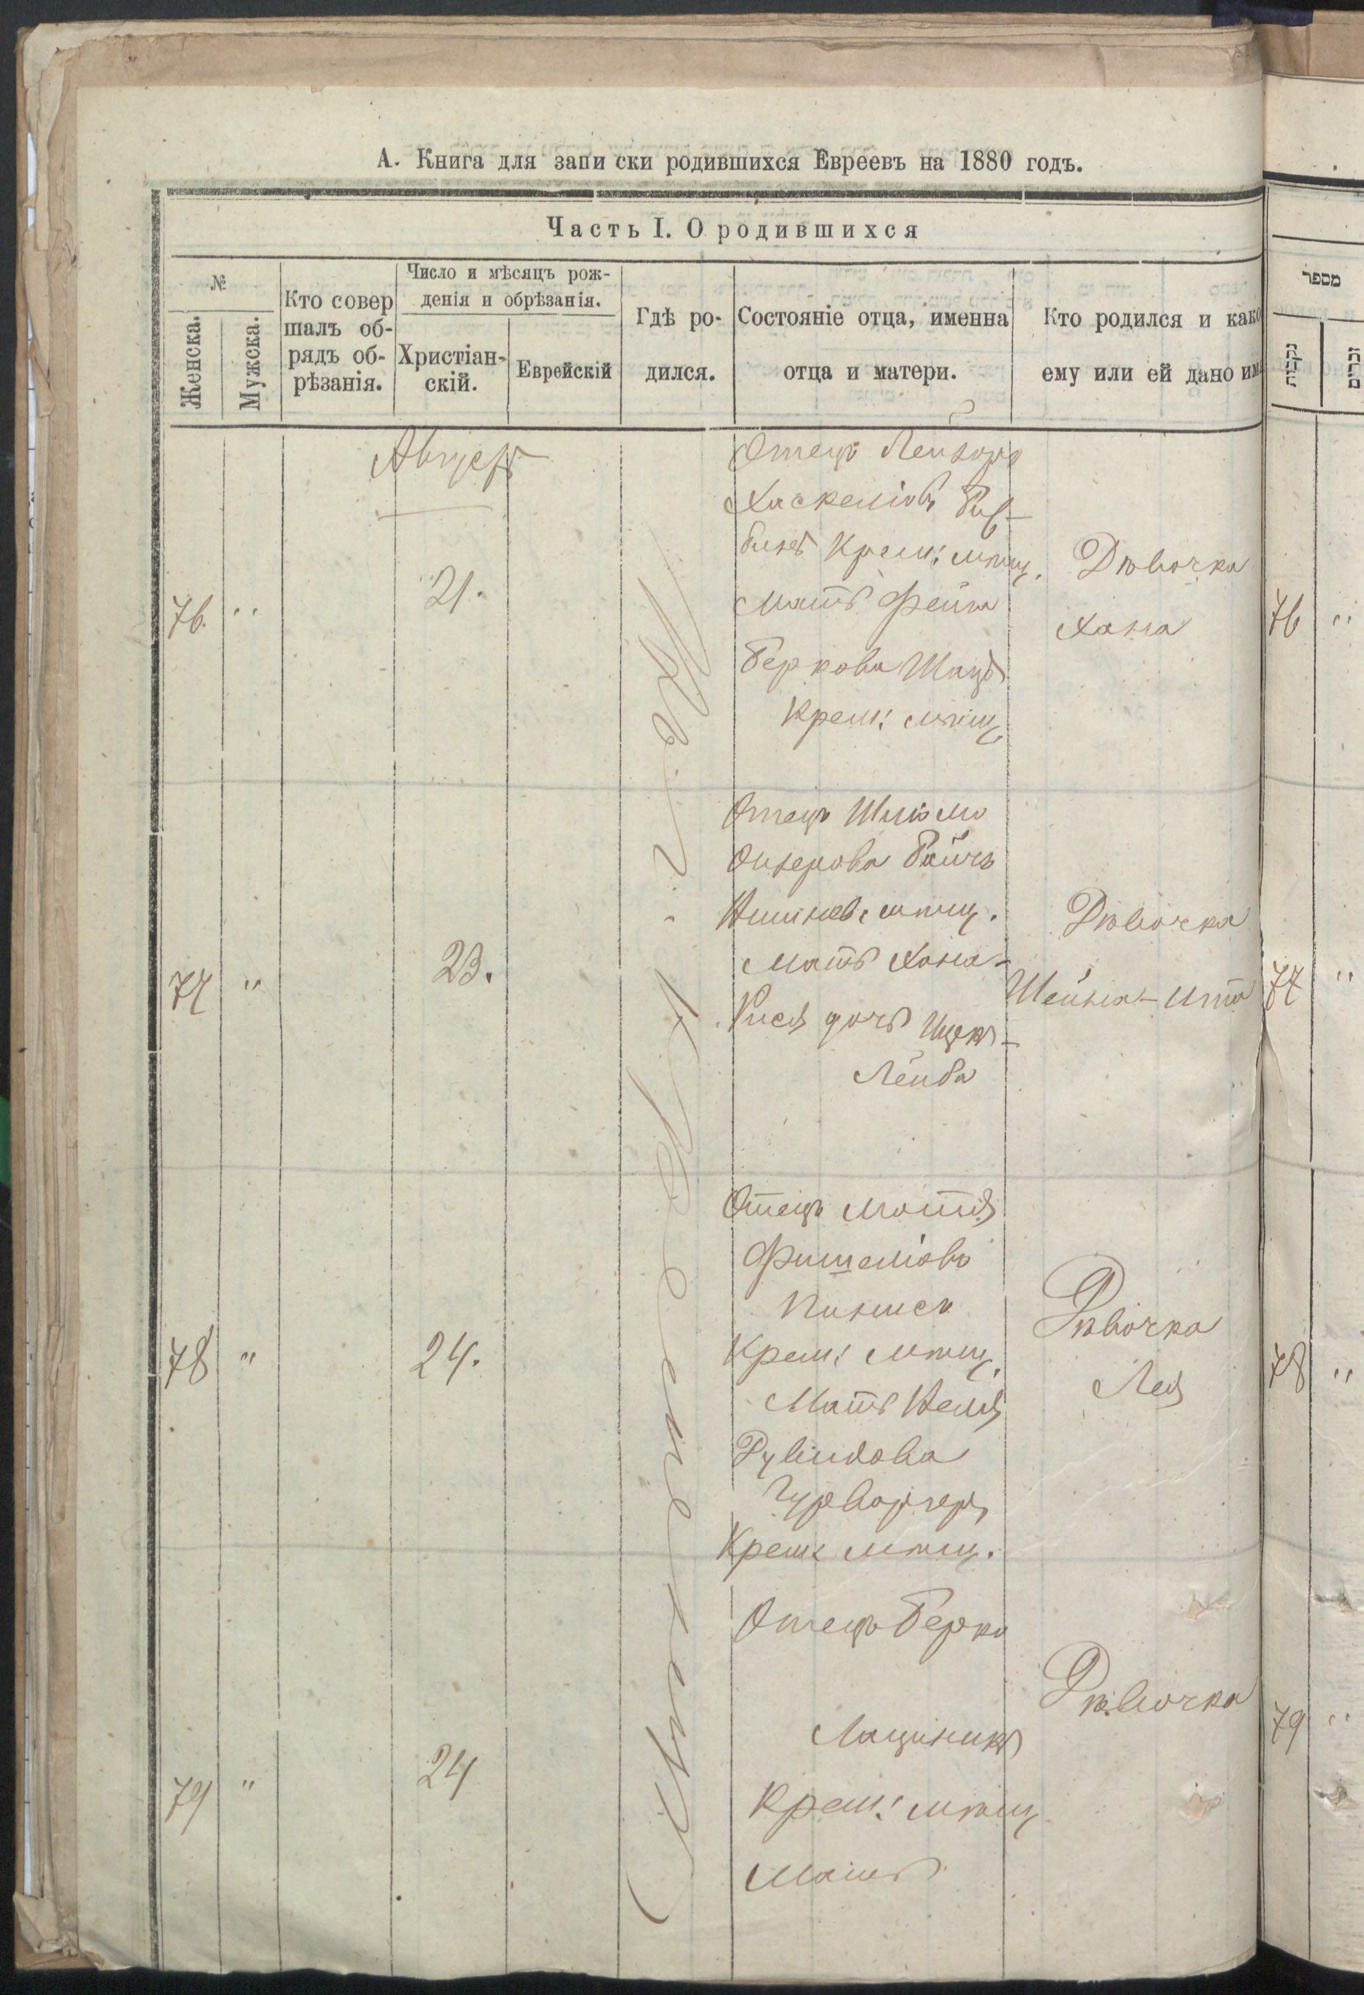 А. Книга для запи ски родившихся Евреевъ на 1880 годъ.
Часть I. О родившихся
№
Женска.
Мужска.
Кто совер
шалъ об-
рядъ об-
рѣзанія.
Число и мѣсяцъ рож-
денія и обрѣзанія.
Христіан-
скій.
Еврейскій
Гдѣ ро-
дился.
Состояніе отца, именна
отца и матери.
Кто родился и како
ему или ей дано им
מספר
נקבות
זכרים
Августъ
76. "
21.
Отецъ Лейзоръ
Хаскеліовъ
Крем: мѣщ.
Мать Фейга
Беркова Шацъ
Крем: мѣщ
Дѣвочка
Хана
76 "
77 "
23.
Отецъ Шліомо
мѣщ.
Мать Хана-
Рися дочь Ицекъ-
Лейба
Дѣвочка
Шейна-Ита
77 "
78 "
24.
Отецъ Мотя
Фишеліовъ
Пинисъ
Крем: мѣщ.
Мать Неля
Рувинова
Крем: мѣщ.
Дѣвочка
Лея
78 "
79 "
24
Отецъ Берко
Крем: мѣщ
Мать
Дѣвочка
79 "